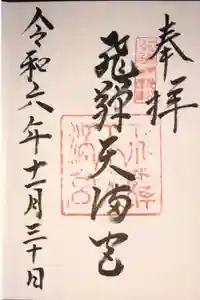 奉拝
飛騨天満宮
令和六年十一月三十日